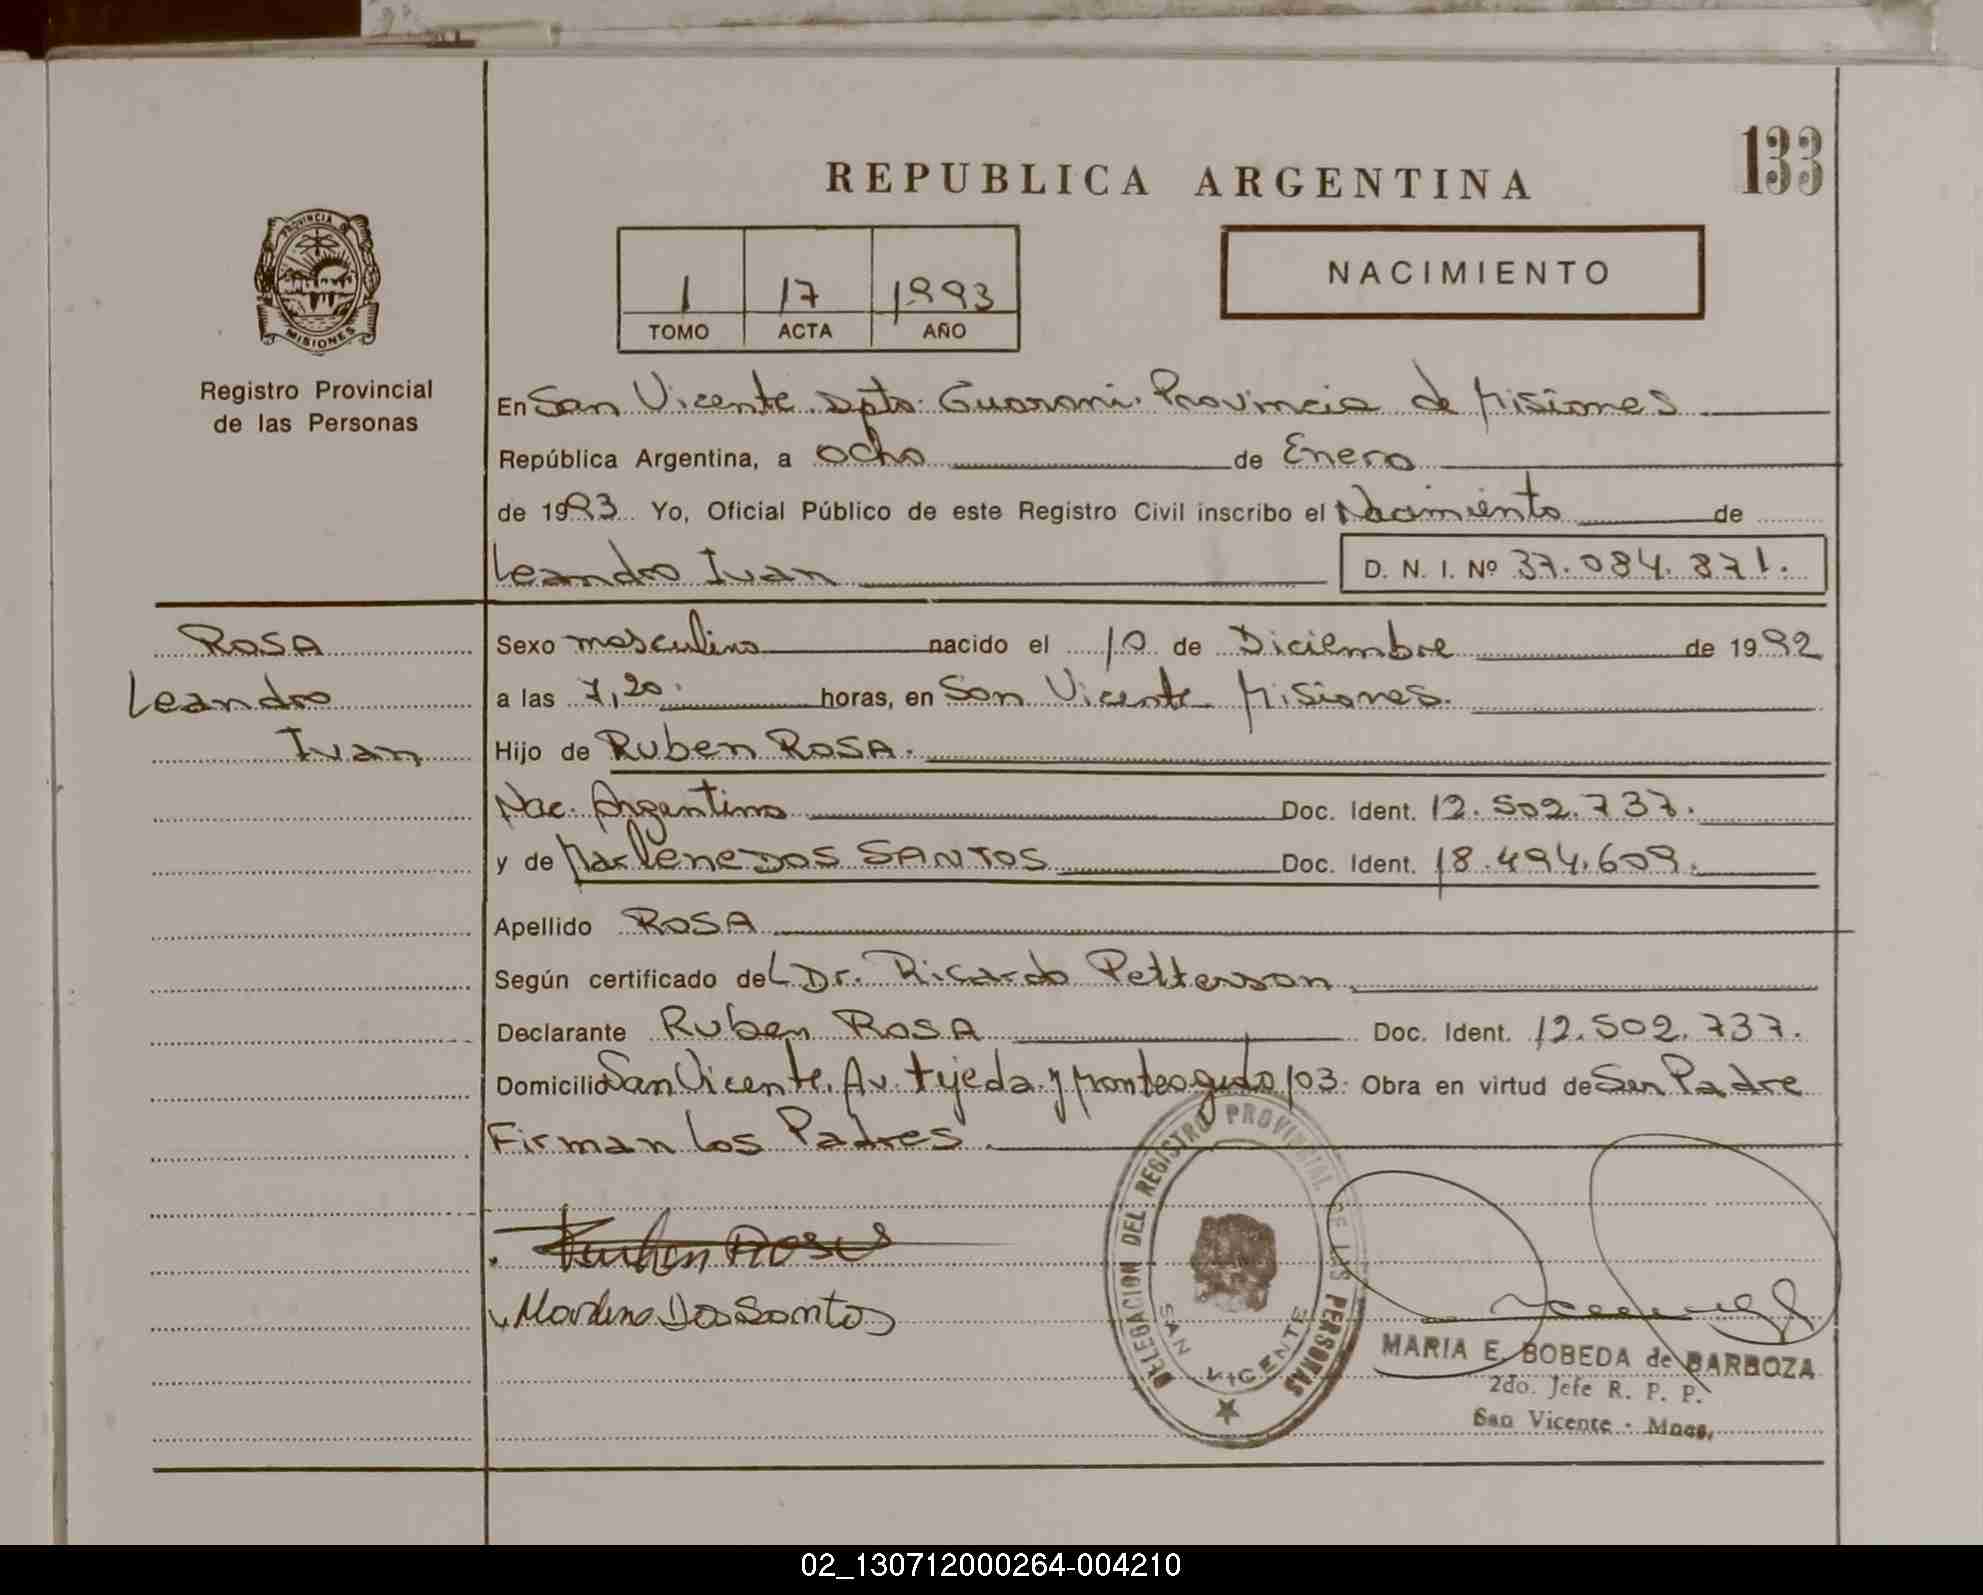 133
REPUBLICA ARGENTINA
PROVINCIA DE
MISIONES
Registro Provincial
de las Personas
1 17 1993
TOMO ACTA AÑO
NACIMIENTO
En San Vicente Dpto. Guaraní. Provincia de Misiones
República Argentina, a ocho de Enero
de 1993 Yo, Oficial Público de este Registro Civil inscribo el Nacimiento de
Leandro Ivan D. N. I. Nº 37.084.871.
ROSA
Leandro
Ivan
Sexo masculino nacido el 10 de Diciembre de 1992
a las 7,20. horas, en San Vicente Misiones.
Hijo de Ruben ROSA.
Nac. Argentino Doc. Ident. 12.502.737.
y de Marlene DOS SANTOS Doc. Ident. 18.494.609.
Apellido ROSA
Según certificado del Dr. Ricardo Petterson
Declarante Ruben ROSA Doc. Ident. 12.502.737.
Domicilio San Vicente. Av. tejeda y Monteagudo 103. Obra en virtud de Ser Padre
Firman los Padres.
Ruben Rosa
Marlene Dos Santos
DELEGACION DEL REGISTRO PROVINCIAL DE LAS PERSONAS
SAN VICENTE
MARIA E. BOBEDA de BARBOZA
2do. Jefe R. P. P.
San Vicente - Mnes.
02_130712000264-004210